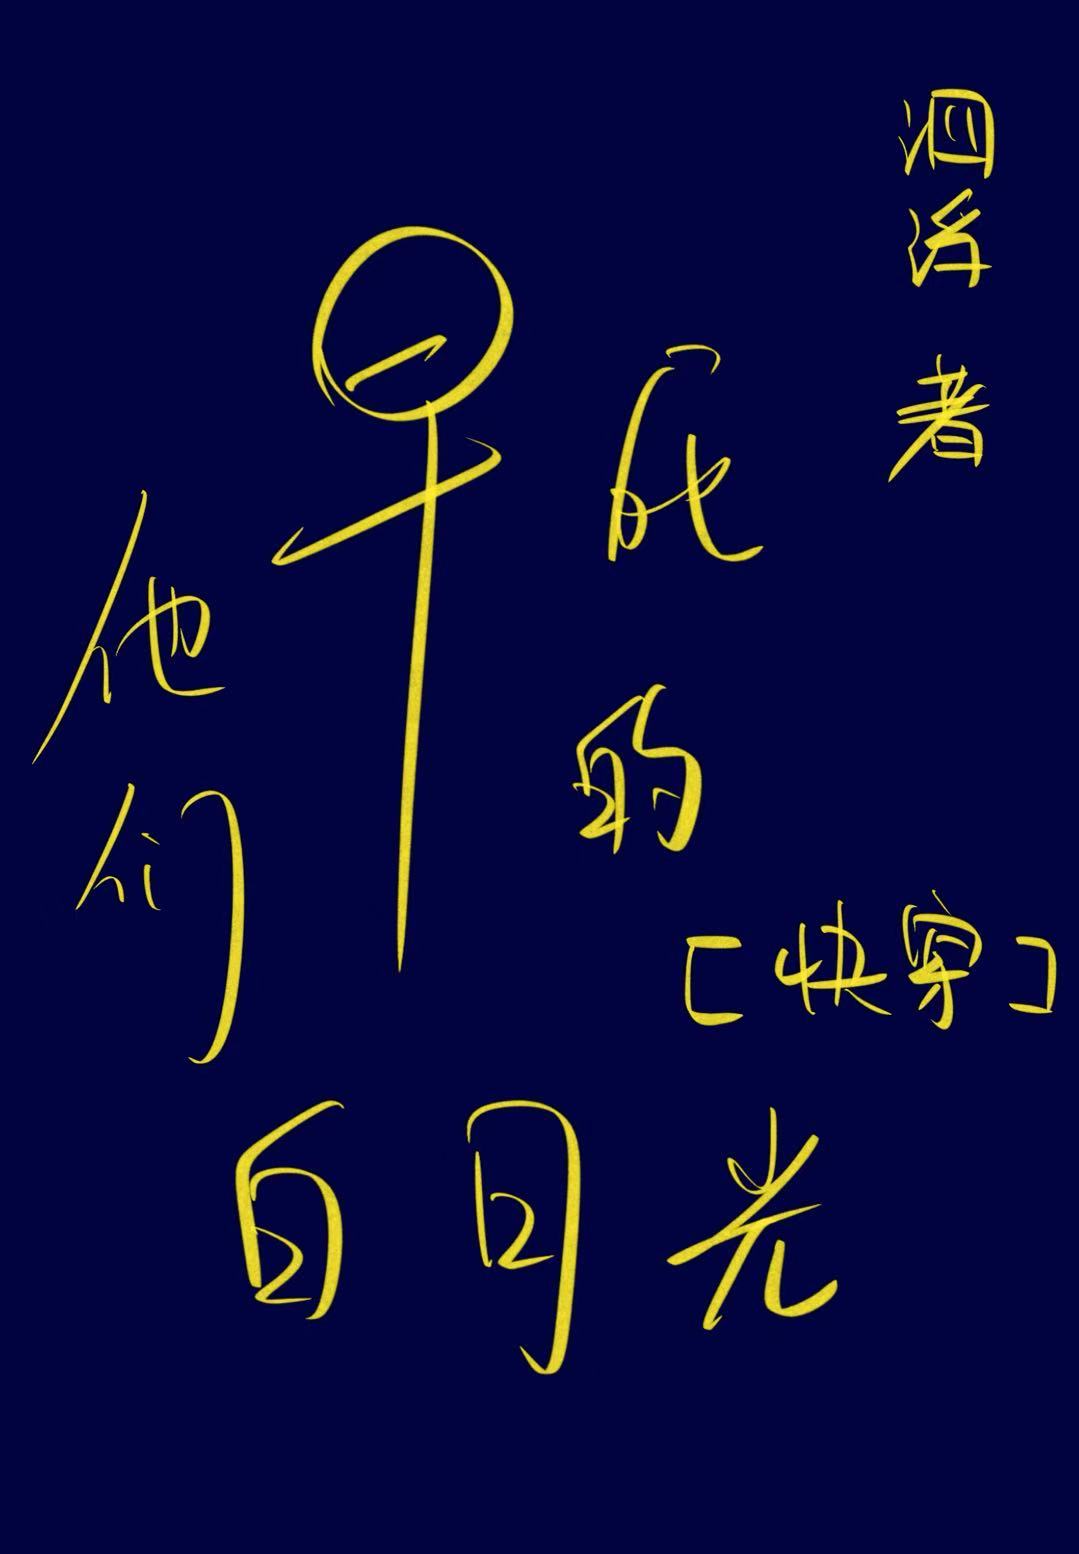 他们
早死的
白月光
[快穿]
泗
者